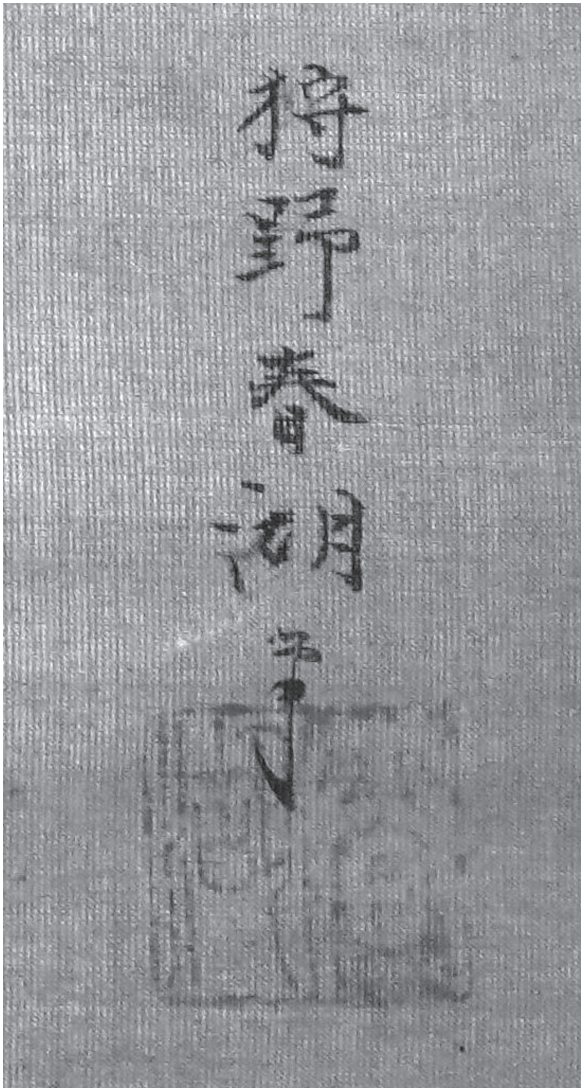 狩野春湖筆